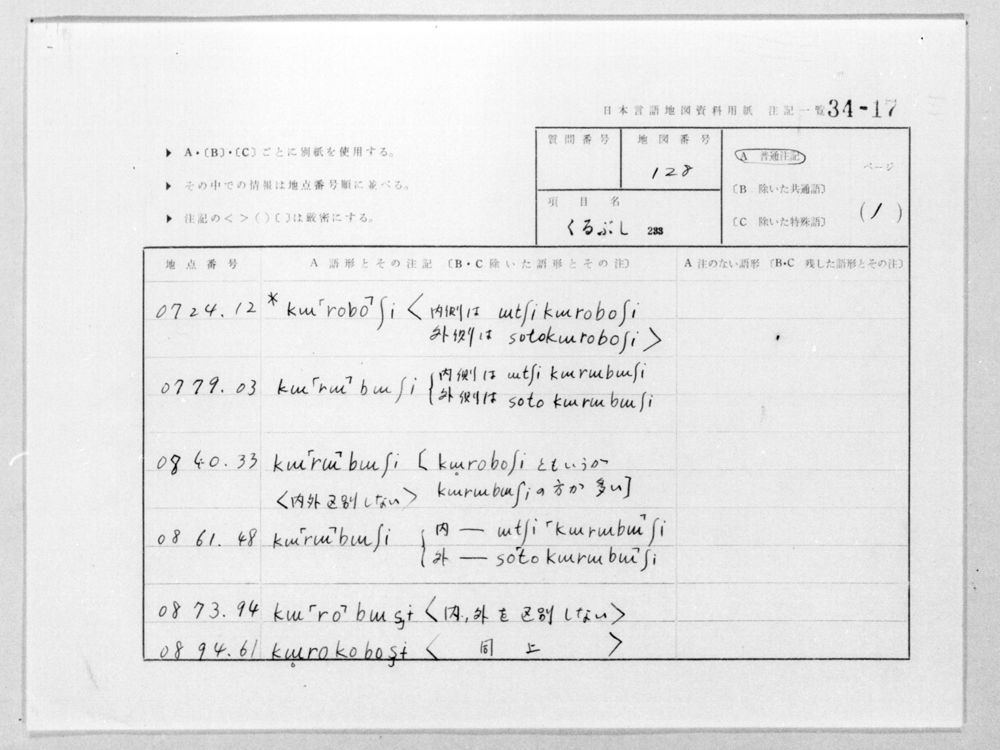 日本言語地図資料用紙 注記一覧 34-17
▶ A・〔B〕・〔C〕ごとに別紙を使用する。
▶ その中での情報は地点番号順に並べる。
▶ 注記の< >( )〔 〕は厳密にする。
質問番号
地図番号
128
項目名
くるぶし 233
A 普通注記
〔B 除いた共通語〕
〔C 除いた特殊語〕
ページ
(1)
地点番号 A 語形とその注記 〔B・C 除いた語形とその注〕 A 注のない語形 〔B・C 残した語形とその注〕
0724.12 * kɯ「robo」ʃi <内側は ɯtʃi kɯroboʃi
外側は sotokɯroboʃi>
0779.03 kɯ「rɯ」bɯʃi {内側は ɯtʃi kɯrɯbɯʃi
外側は soto kɯrɯbɯʃi
0840.33 kɯ「rɯ」bɯʃi [kɯ̥roboʃi ともいうが
<内外区別しない> kɯrɯbɯʃi の方が多い]
0861.48 kɯ「rɯ」bɯʃi {内 — ɯtʃi「kɯrɯbɯ」ʃi
外 — so「to kɯrɯbɯ」ʃi
0873.94 kɯ「ro」bɯʂɨ <内,外を区別しない>
0894.61 kɯ̥rokoboʂɨ < 同上 >